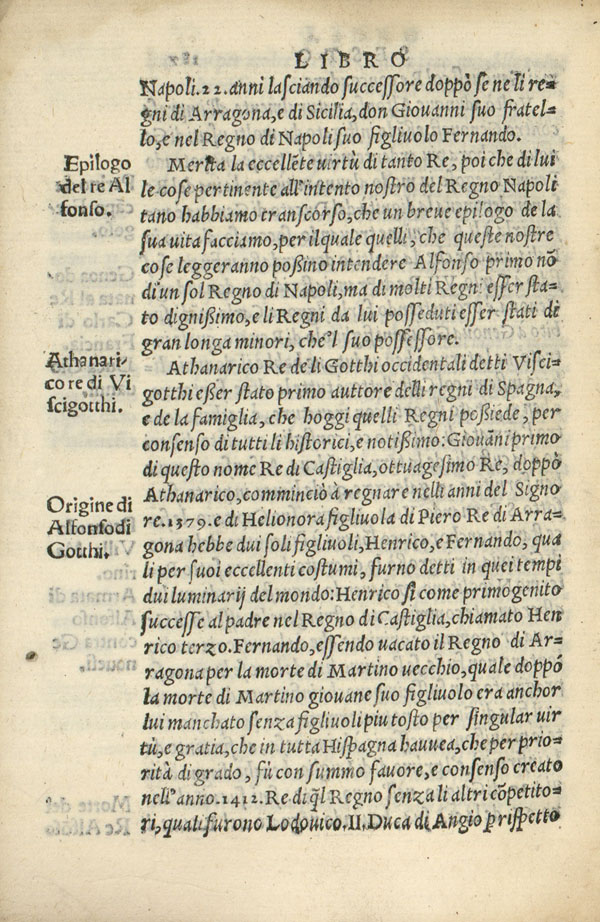 LIBRO
Napoli.22.anni lasciando successore doppò se ne li re=
gni di Arragona,e di Sicilia, don Giouanni suo fratel=
lo,e nel Regno di Napoli suo figliuolo Fernando.
Epilogo
del re Al
fonso.
Merita la eccellẽte uirtù di tanto Re, poi che di lui
le cose pertinente all'intento nostro del Regno Napoli
tano habbiamo transcorso,che un breue epilogo de la
sua uita facciamo,per ilquale quelli,che queste nostre
cose leggeranno poßino intendere Alfonso primo nõ
di un sol Regno di Napoli,ma di molti Regni esser sta=
to dignißimo,e li Regni da lui posseduti esser stati di
gran longa minori, che'l suo possessore.
Athanari-
co re di Vi
scigotthi.
Athanarico Re de li Gotthi occidentali detti Visci=
gotthi eßer stato primo auttore delli regni di Spagna,
e de la famiglia, che hoggi quelli Regni poßiede, per
consenso di tutti li historici,e notißimo:Giouãni primo
di questo nome Re di Castiglia,ottuagesimo Re, doppò
Athanarico,comminciò a regnare nelli anni del Signo
re.1379.e di Helionora figliuola di Piero Re di Arra=
gona hebbe dui soli figliuoli,Henrico,e Fernando, qua
li per suoi eccellenti costumi, furno detti in quei tempi
dui luminarij del mondo:Henrico sì come primogenito
successe al padre nel Regno di Castiglia,chiamato Hen
rico terzo.Fernando,essendo uacato il Regno di Ar=
ragona per la morte di Martino uecchio,quale doppò
la morte di Martino giouane suo figliuolo era anchor
lui manchato senza figliuoli piu tosto per singular uir
tù,e gratia,che in tutta Hispagna hauuea,che per prio=
rità di grado, fù con summo fauore,e consenso creato
nell'anno.1412.Re di q̃l Regno senza li altri cõpetito=
ri,quali furono Lodouico.II.Duca di Angio p rispetto
Origine di
Alfonso di
Gotthi.